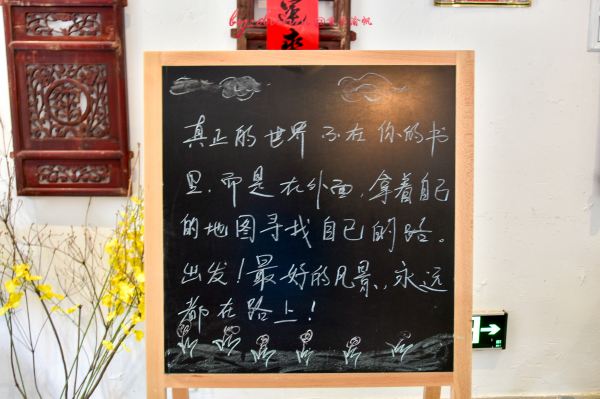 真正的世界不在你的书
里，而是在外面，拿着自己
的地图寻找自己的路。
出发！最好的风景，永远
都在路上！